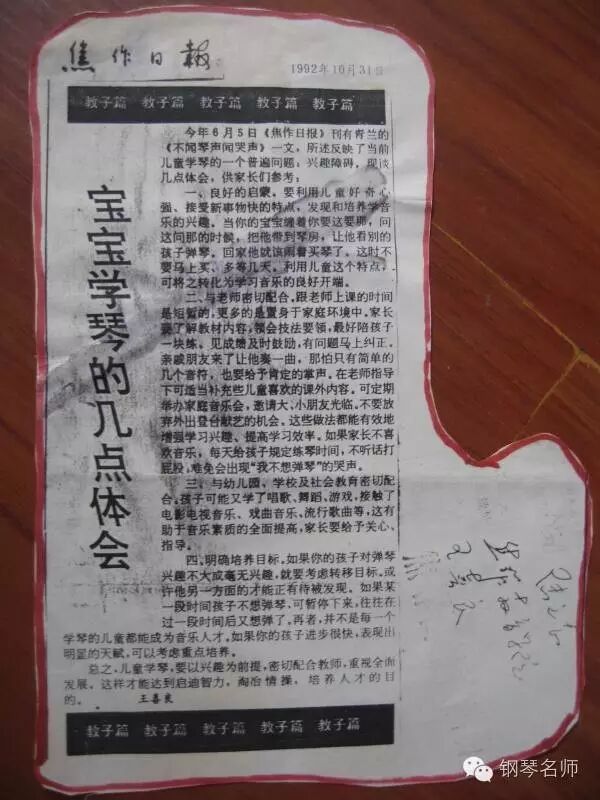 焦作日报
1992年10月31日
教子篇 教子篇 教子篇 教子篇 教子篇
宝宝学琴的几点体会
今年6月5日《焦作日报》刊有青兰的
《不闻琴声闻哭声》一文,所述反映了当前
儿童学琴的一个普遍问题:兴趣障碍。现谈
几点体会,供家长们参考:
一、良好的启蒙。要利用儿童好奇心
强、接受新事物快的特点,发现和培养学音
乐的兴趣。当你的宝宝缠着你要这要那,问
这问那的时候,把他带到琴房,让他看别的
孩子弹琴。回家他就该闹着买琴了。这时不
要马上买,多等几天。利用儿童这个特点,
可将之转化为学习音乐的良好开端。
二、与老师密切配合。跟老师上课的时间
是短暂的,更多的是置身于家庭环境中。家长
要了解教材内容,领会技法要领,最好陪孩子
一块练。见成绩及时鼓励,有问题马上纠正。
亲戚朋友来了让他奏一曲,那怕只有简单的
几个音符,也要给予肯定的掌声。在老师指导
下可适当补充些儿童喜欢的课外内容。可定期
举办家庭音乐会,邀请大、小朋友光临。不要放
弃外出登台献艺的机会。这些做法都能有效地
增强学习兴趣、提高学习效率。如果家长不喜
欢音乐,每天给孩子规定练琴时间,不听话打
屁股,难免会出现“我不想弹琴”的哭声。
三、与幼儿园、学校及社会教育密切配
合。孩子可能又学了唱歌、舞蹈、游戏,接触了
电影电视音乐、戏曲音乐、流行歌曲等,这有
助于音乐素质的全面提高,家长要给予关心、
指导。
四、明确培养目标。如果你的孩子对弹琴
兴趣不大或毫无兴趣,就要考虑转移目标。或
许他另一方面的才能正有待被发现。如果某
一段时间孩子不想弹琴,可暂停下来,往往在
过一段时间后又想弹了,再者,并不是每一个
学琴的儿童都能成为音乐人才。如果你的孩子进步很快,表现出
明显的天赋,可以考虑重点培养。
总之,儿童学琴,要以兴趣为前提,密切配合教师,重视全面
发展。这样才能达到启迪智力,陶冶情操,培养人才的目
的。 王喜良
教子篇 教子篇 教子篇 教子篇 教子篇
钢琴名师